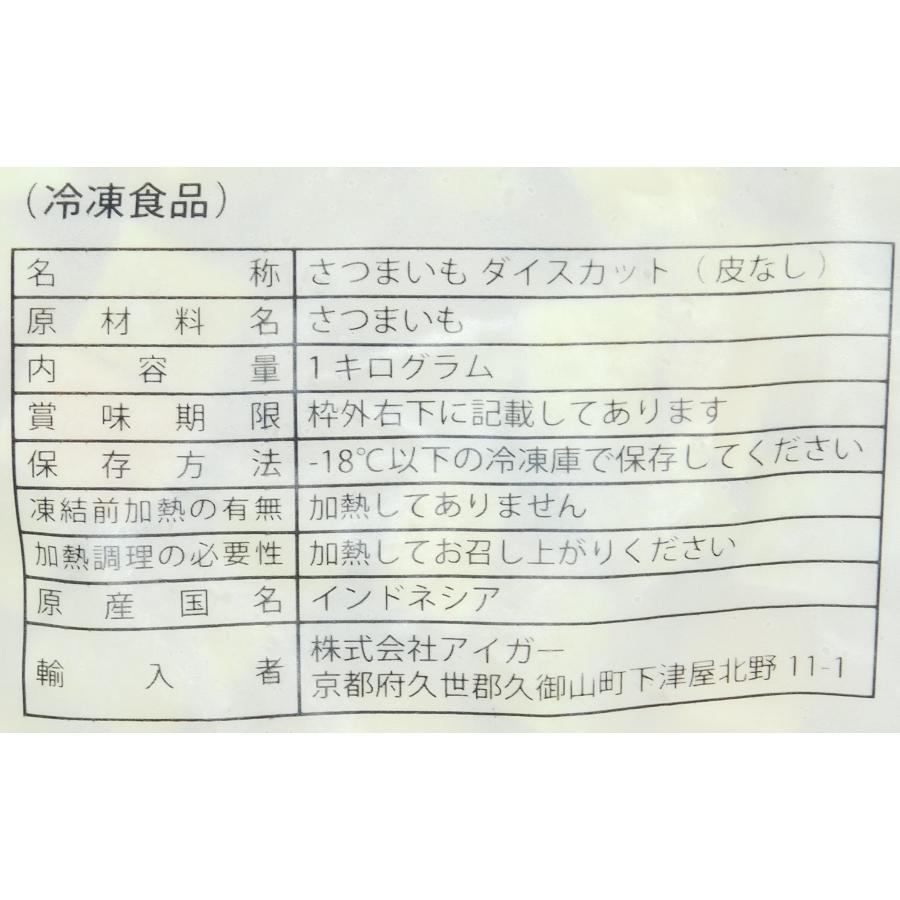 (冷凍食品)
名称 さつまいも ダイスカット (皮なし)
原材料名 さつまいも
内容量 1キログラム
賞味期限 枠外右下に記載してあります
保存方法 -18℃以下の冷凍庫で保存してください
凍結前加熱の有無 加熱してありません
加熱調理の必要性 加熱してお召し上がりください
原産国名 インドネシア
輸入者 株式会社アイガー
京都府久世郡久御山町下津屋北野 11-1